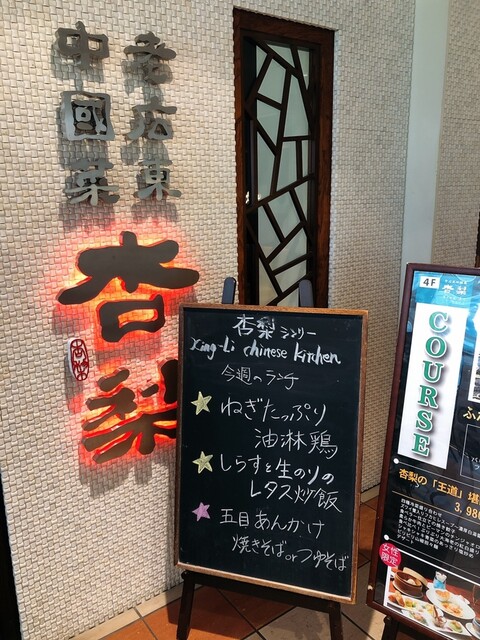 老広東
中國菜
杏梨
杏梨 シンリー
Xing-Li chinese kitchen
今週のランチ
ねぎたっぷり
油淋鶏
しらすと生のりの
レタス炒飯
五目あんかけ
焼きそば or つゆそば
4F
杏梨
COURSE
杏梨の「王道」堪
3,98
女性
限定